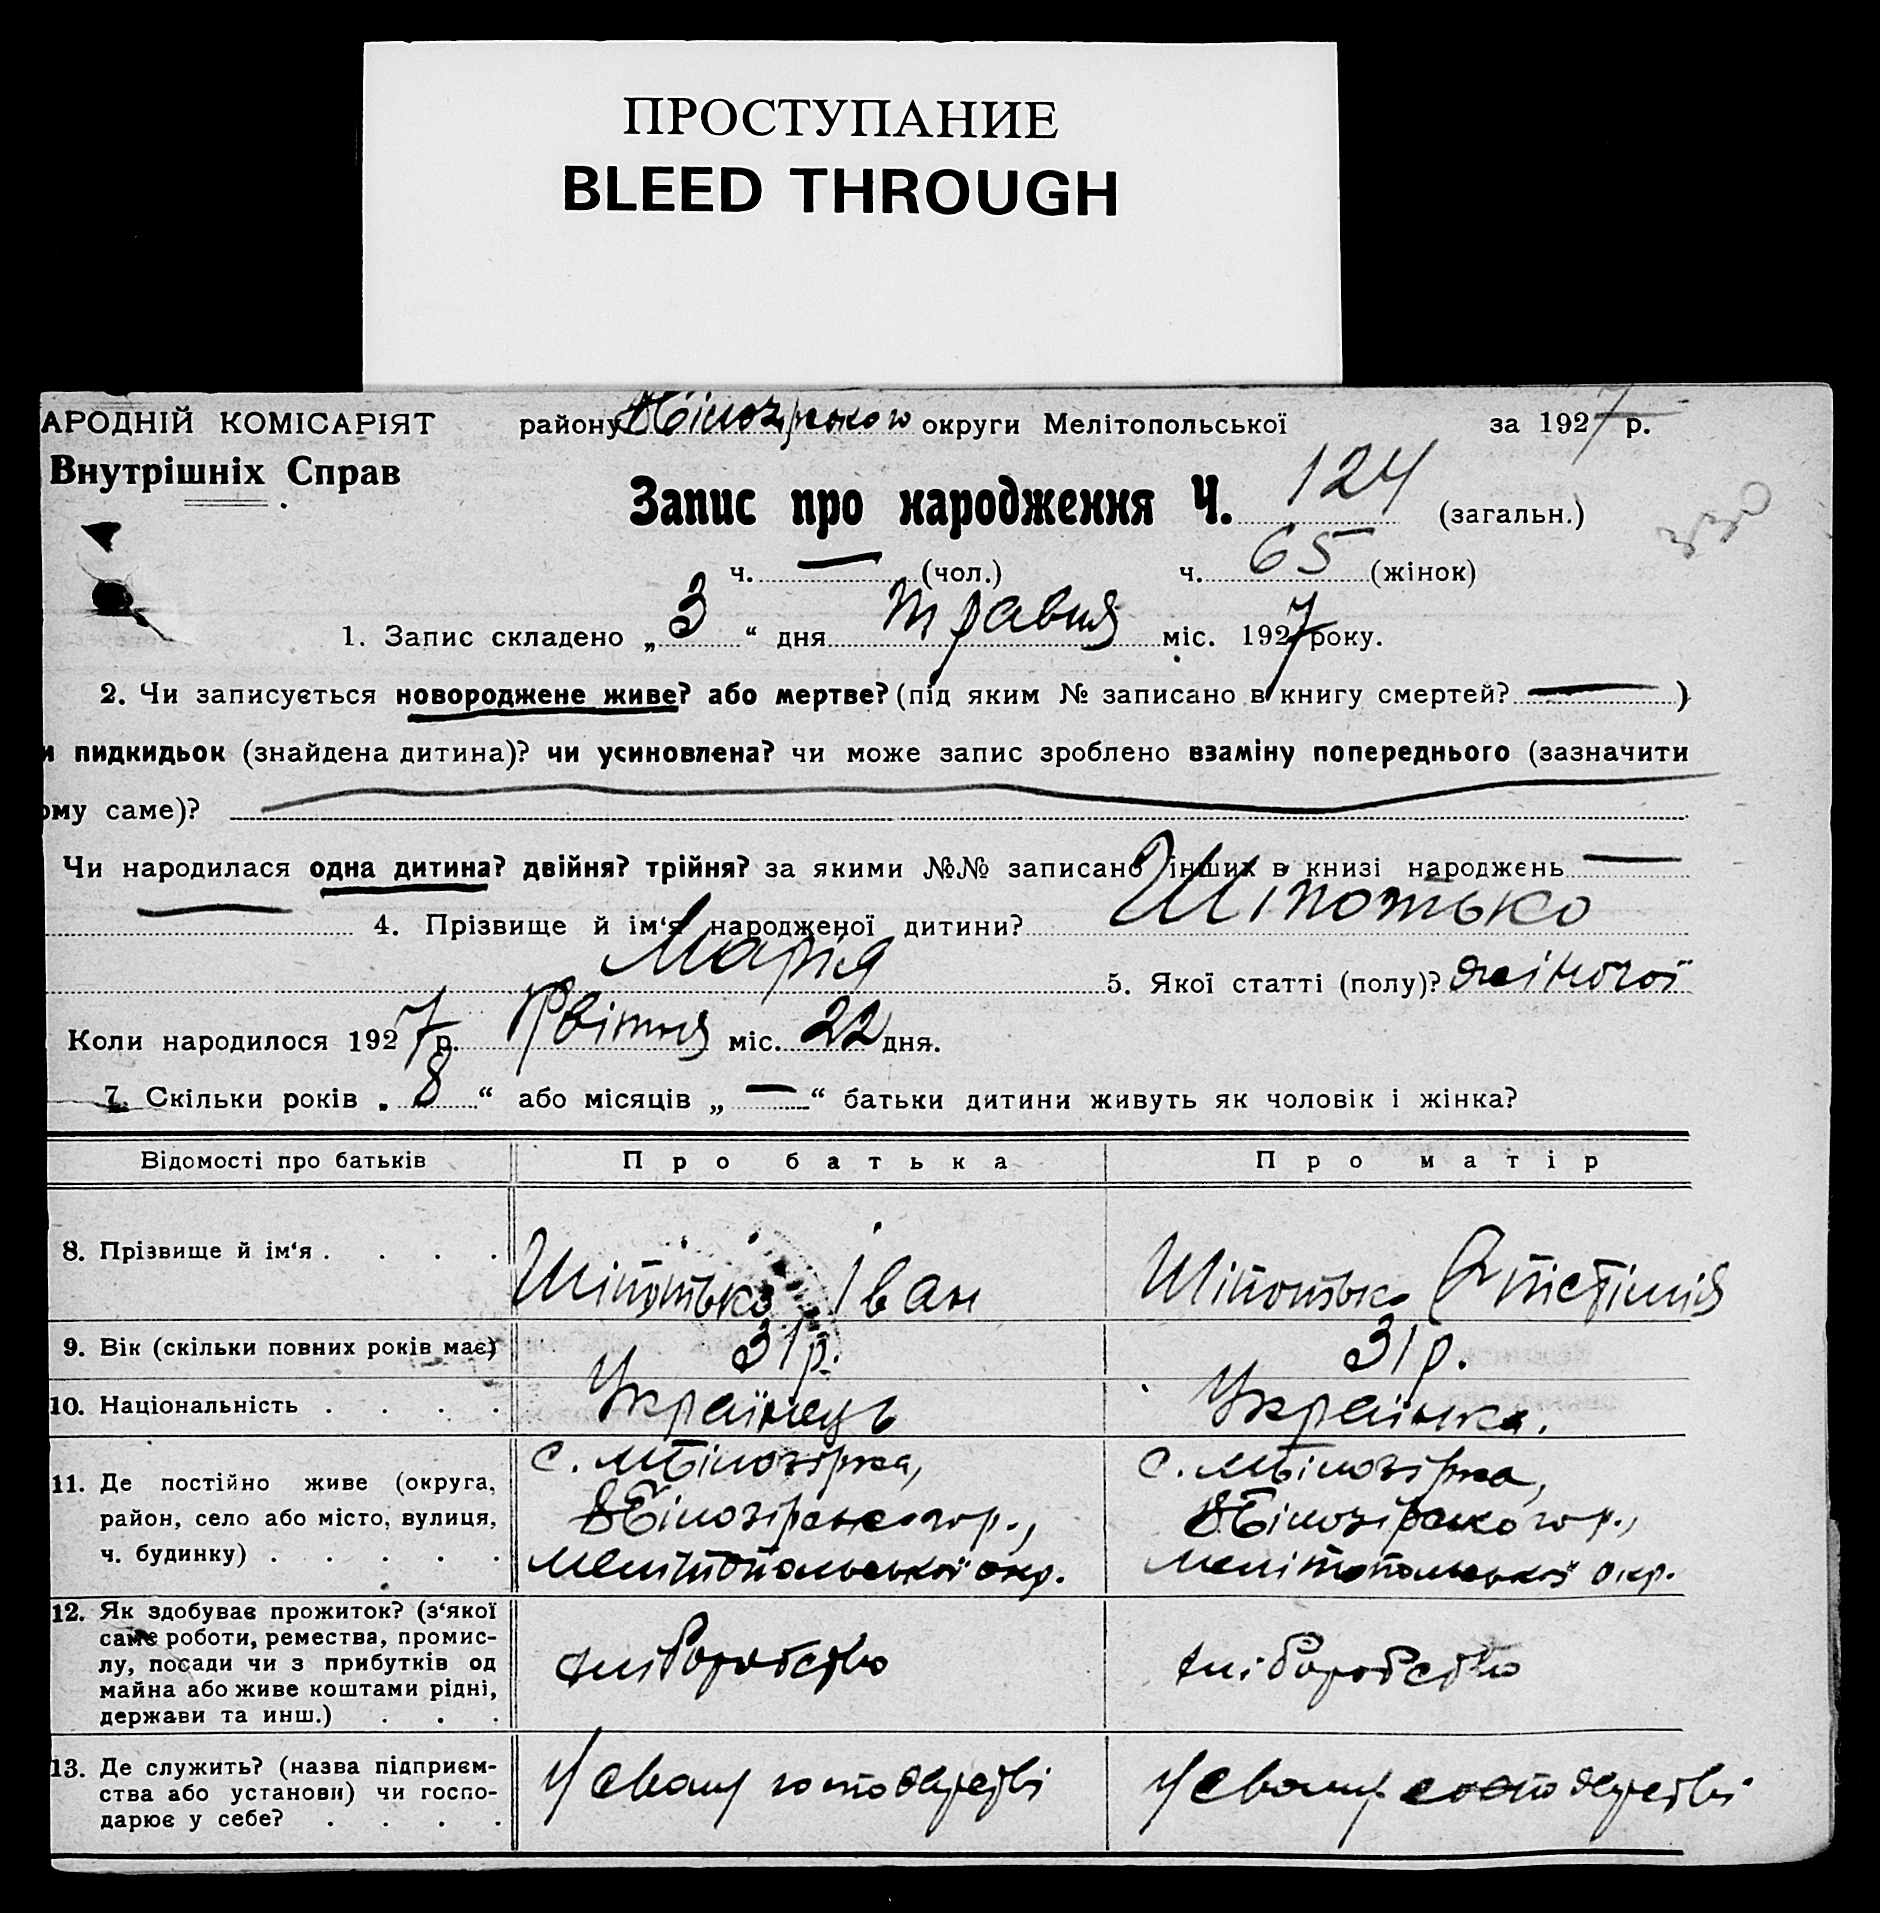 ПРОСТУПАНИЕ
BLEED THROUGH
АРОДНІЙ КОМІСАРІЯТ району В Білозірського округи Мелітопольської за 1927 р.
Внутрішніх Справ
Запис про народження Ч. 124 (загальн.)
330
ч. — (чол.) ч. 65 (жінок)
1. Запис складено „ 3 “ дня травня міс. 1927 року.
2. Чи записується новороджене живе? або мертве? (під яким № записано в книгу смертей? — )
и пидкидьок (знайдена дитина)? чи усиновлена? чи може запис зроблено взаміну попереднього (зазначити
ому саме)?
Чи народилася одна дитина? двійня? трійня? за якими №№ записано інших в книзі народжєнь —
— 4. Прізвище й ім‘я народженої дитини? Шіпотько
Марія 5. Якої статті (полу)? жіночої
Коли народилося 1927 р. Квітня міс. 22 дня.
7. Скільки років „ 8 “ або місяців „ — “ батьки дитини живуть як чоловік і жінка?
Відомості про батьків Про батька Про матір
8. Прізвище й ім‘я . . . . Шіпотько Іван Шіпотько
9. Вік (скільки повних років має) 31 р. 31 р.
10. Національність . . . . Українець Українка.
11. Де постійно живе (округа, с. М Білозірка, с. М Білозірка,
район, село або місто, вулиця, В Білозірського р., В Білозірського р.,
ч. будинку) . . . . . Мелітопольської окр. Мелітопольської окр.
12. Як здобуває прожиток? (з‘якої
саме роботи, ремества, промис-
лу, посади чи з прибутків од хліборобство хліборобство
майна або живе коштами рідні,
держави та инш.) . . .
13. Де служить? (назва підприєм-
ства або установи) чи госпо- У свому господарстві У свому господарстві
дарює у себе? . . . .